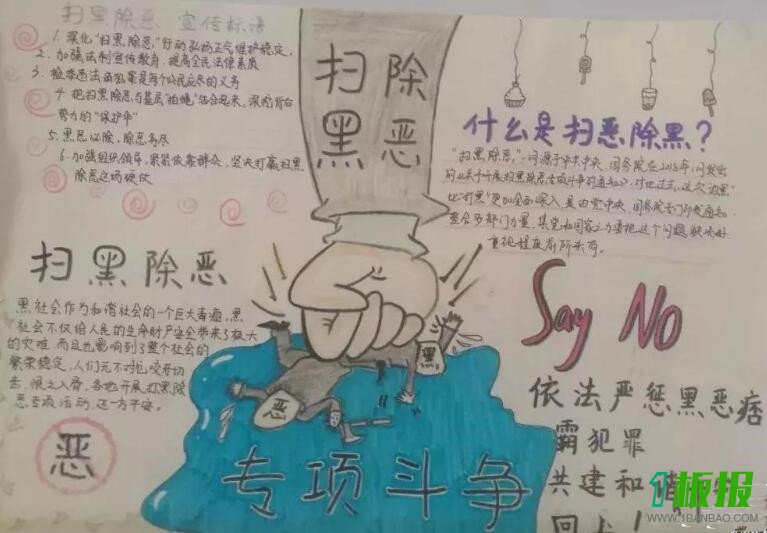 扫黑除恶 宣传标语
1. 深化"扫黑除恶"行动弘扬正气维护稳定。
2. 加强法制宣传教育，提高全民法律素质
3. 检举违法犯罪是每个公民应尽的义务
4 把扫黑除恶与基层"拍蝇"结合起来，深挖背后
势力的"保护伞"
5. 黑恶必除，除恶务尽
6. 加强组织领导，紧紧依靠群众，坚决打赢扫黑
除恶这场硬仗
扫除
黑恶
什么是扫恶除黑？
"扫黑除恶"，词源于中共中央、国务院在2018年1月发出
的《关于开展扫黑除恶专项斗争的通知》，对比过去，这次"扫黑"
比"打黑"更加全面深入，是由党中央、国务院专门所发通知
整合多部门力量，集党和国家之力要把这个问题解决好
重视程度前所未有。
扫黑除恶
黑社会作为和谐社会的一个巨大毒瘤，黑
社会不仅给人民的生命财产安全带来了极大
的灾难 而且也影响到了整个社会的
繁荣稳定，人们无不对他咬牙切
去、恨之入骨，各地开展打黑除
恶专项活动，还一方平安。
恶
黑
恶
Say No
依法严惩黑恶痞
霸犯罪
共建和谐
专项斗争
板报
WWW.1BANBAO.COM